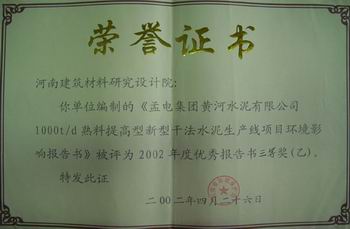 荣誉证书
河南建筑材料研究设计院:
你单位编制的《孟电集团黄河水泥有限公司
1000t/d熟料提高型新型干法水泥生产线项目环境影
响报告书》被评为2002年度优秀报告书三等奖(乙)。
特发此证
二00二年四月二十六日